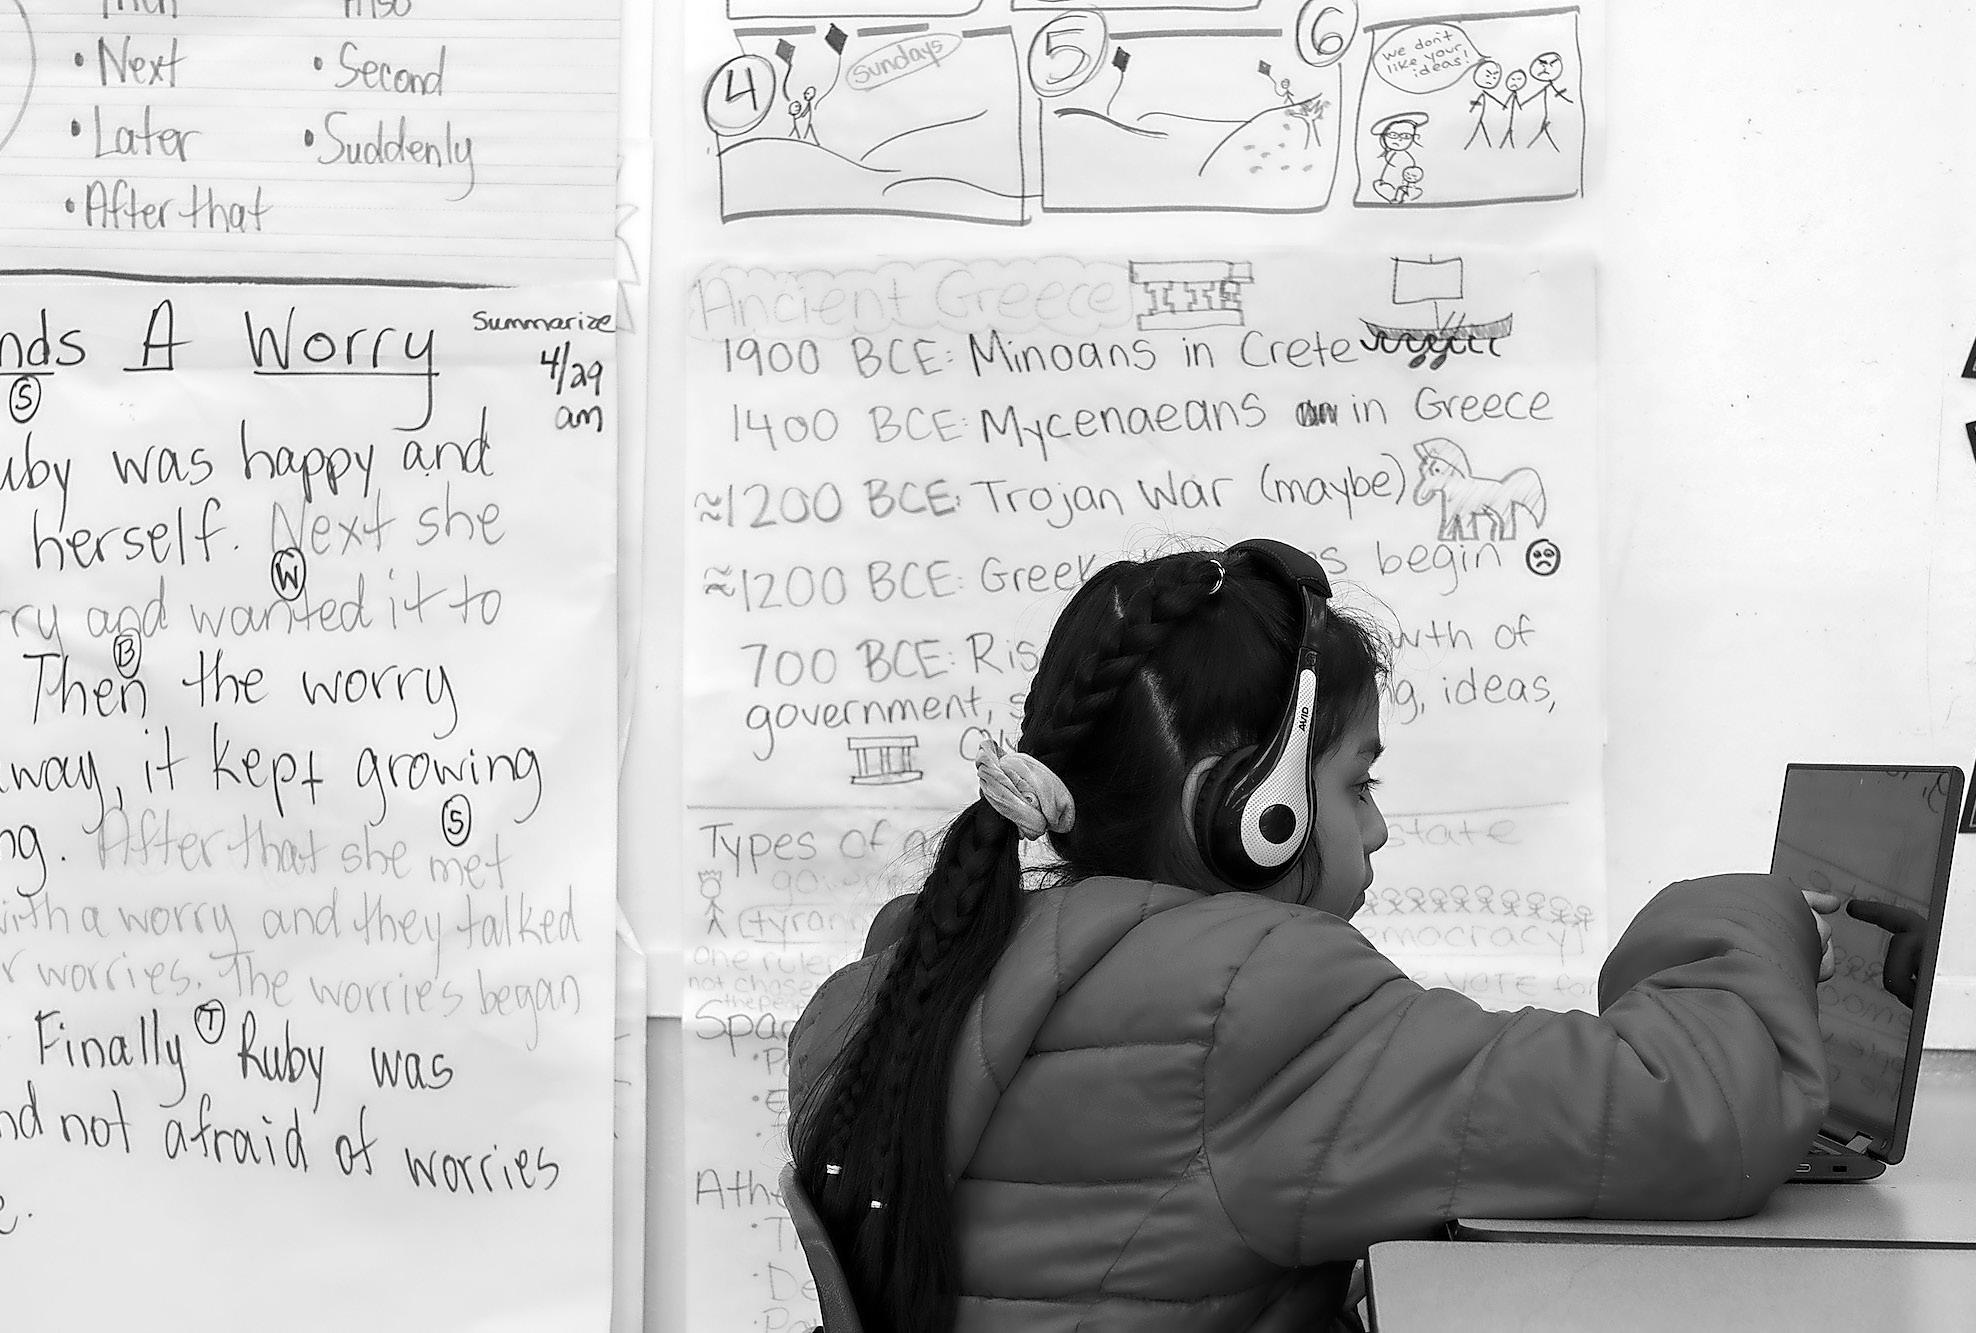 Then
Also
• Next
• Second
• Later
• Suddenly
• After that
nds A Worry
Summarize
4/29
am
S
uby was happy and
herself. Next she
W
rry and wanted it to
B
Then the worry
way, it kept growing
S
ng. After that she met
with a worry and they talked
r worries. The worries began
T
Finally Ruby was
nd not afraid of worries
e.
4
sundays
5
6
we don't
like your
ideas!
Ancient Greece
1900 BCE: Minoans in Crete
1400 BCE: Mycenaeans in Greece
≈1200 BCE: Trojan War (maybe)
≈1200 BCE: Greek s begin
700 BCE: Ris wth of
government, s g, ideas,
Types of state
(tyran emocracy)
one ruler
not chose VOTE for
the pe
Spa
• P
• E
Athe
• T
• De
• Pa
AVID